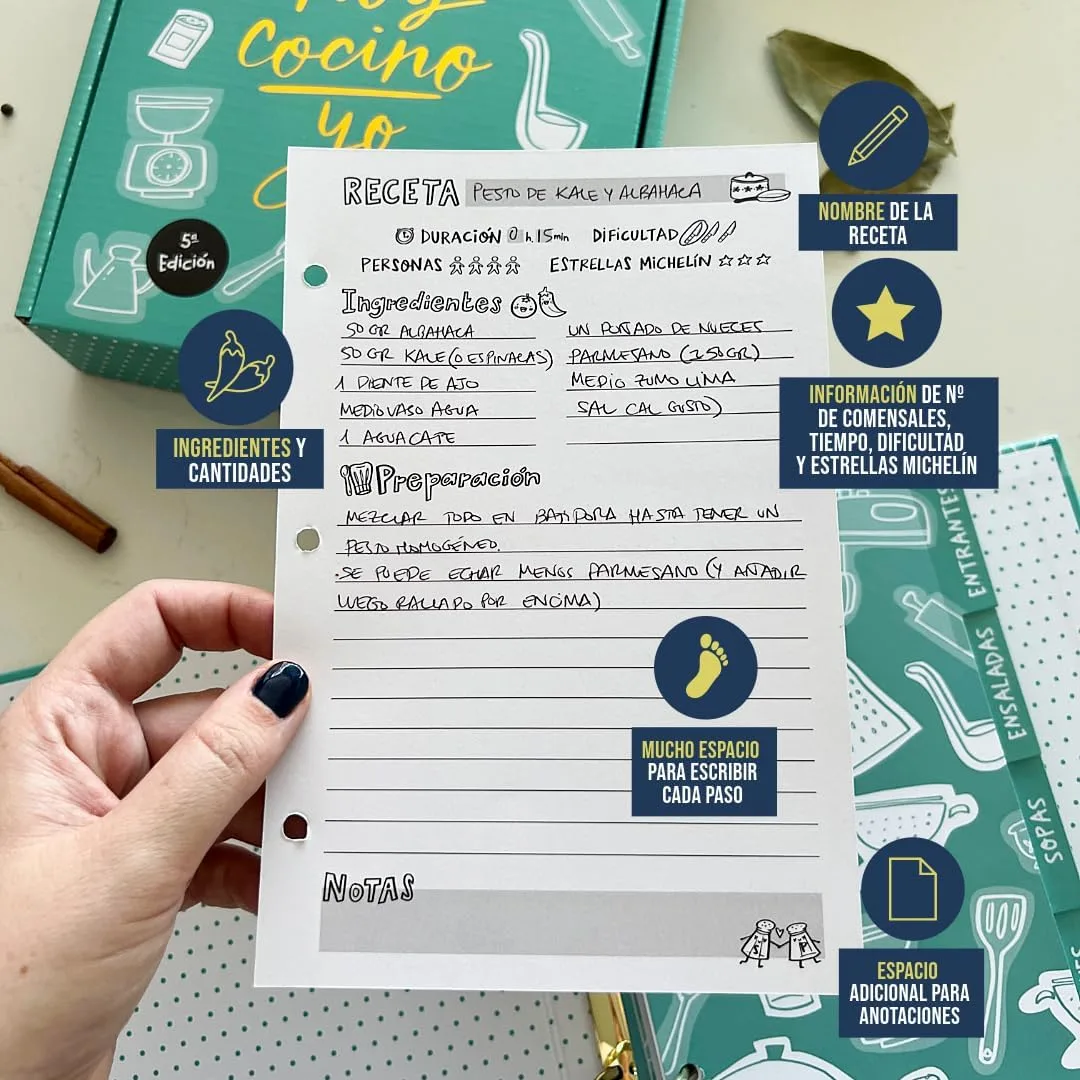 Cocino
yo
5ª
Edición
RECETA PESTO DE KALE Y ALBAHACA
DURACIÓN 0 h. 15 min DIFICULTAD
PERSONAS ESTRELLAS MICHELÍN
Ingredientes
50 GR ALBAHACA
50 GR KALE (O ESPINACAS)
1 DIENTE DE AJO
MEDIO VASO AGUA
1 AGUACATE
UN PUÑADO DE NUECES
PARMESANO (250GR)
MEDIO ZUMO LIMA
SAL (AL GUSTO)
Preparación
MEZCLAR TODO EN BATIDORA HASTA TENER UN
PESTO HOMOGÉNEO.
·SE PUEDE ECHAR MENOS PARMESANO (Y AÑADIR
LUEGO RALLADO POR ENCIMA)
NOTAS
NOMBRE DE LA
RECETA
INFORMACIÓN DE Nº
DE COMENSALES,
TIEMPO, DIFICULTAD
Y ESTRELLAS MICHELÍN
INGREDIENTES Y
CANTIDADES
MUCHO ESPACIO
PARA ESCRIBIR
CADA PASO
ESPACIO
ADICIONAL PARA
ANOTACIONES
ENTRANTES
ENSALADAS
SOPAS